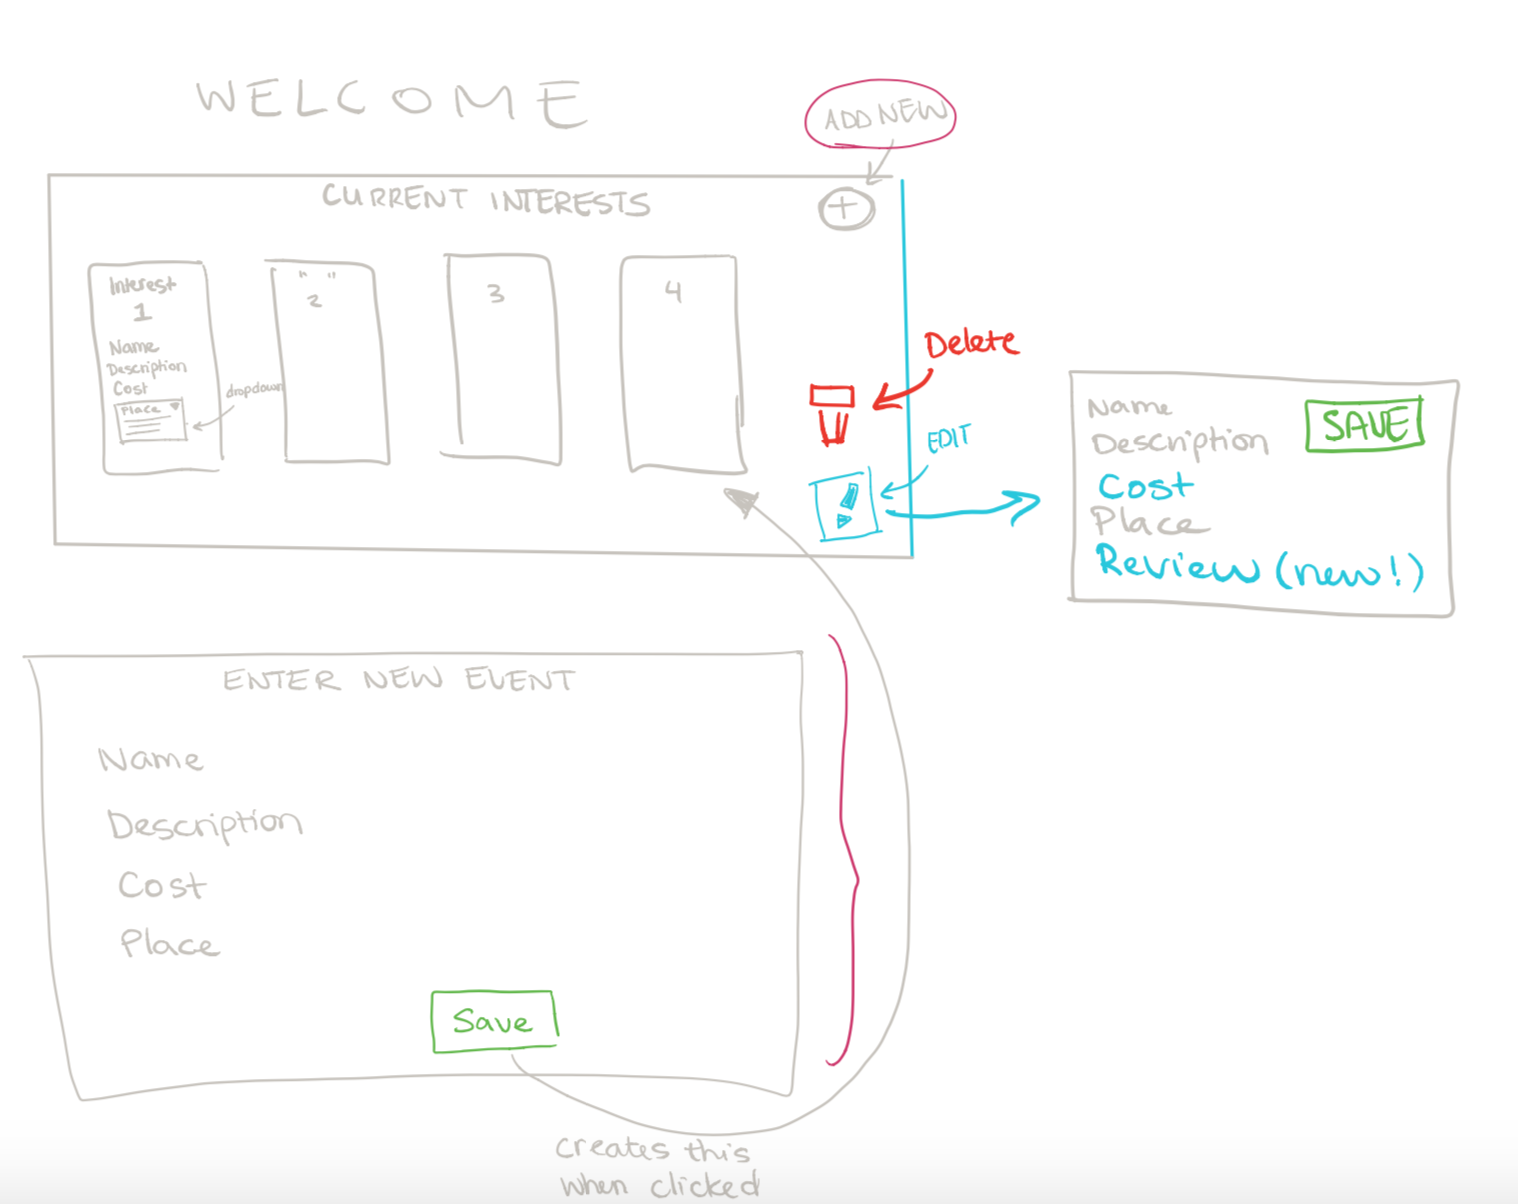 WELCOME
ADD NEW
CURRENT INTERESTS
+
Interest
1
Name
Description
Cost
Place
dropdown
" "
2
3
4
Delete
EDIT
Name
SAVE
Description
Cost
Place
Review (new!)
ENTER NEW EVENT
Name
Description
Cost
Place
Save
creates this
when clicked